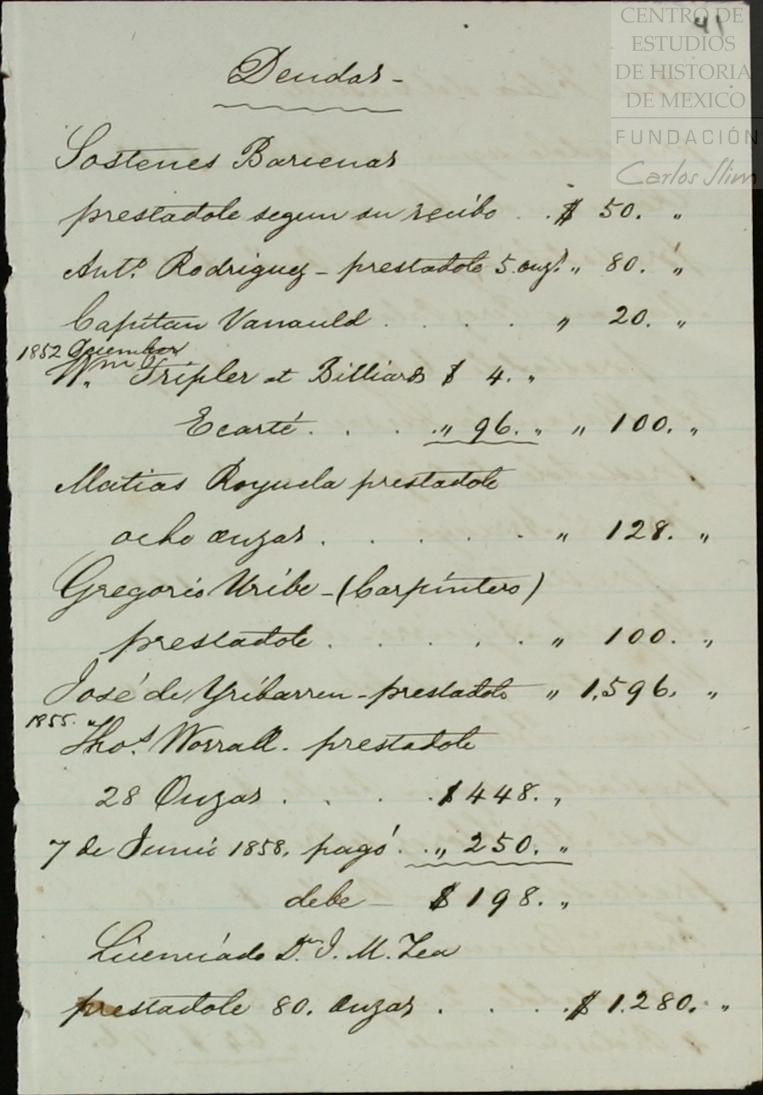 41
CENTRO DE
ESTUDIOS
DE HISTORIA
DE MEXICO
FUNDACIÓN
Carlos Slim
Deudas -
Sostenes Barcenas
prestadole segun su recibo . . $ 50. "
Anto. Rodriguez - prestadole 5. onzs. " 80. "
Capitan Vanauld . . . . " 20. "
1852 Diciembre
Wm. Tripler at Billiards $ 4. "
Ecarté . . . . " 96. " " 100. "
Matias Royuela prestadole
ocho onzas . . . . . . " 128. "
Gregorio Uribe - (Carpintero)
prestadole . . . . . " 100. "
José de Yribarren - prestadole " 1,596. "
1855. "
Thos. Worrall - prestadole
28 Onzas . . . . $ 448. "
7 de Junio 1858. pagó . . " 250. "
debe - $ 198. "
Licenciado Dn. J. M. Zea
prestadole 80. Onzas . . . . $ 1.280. "